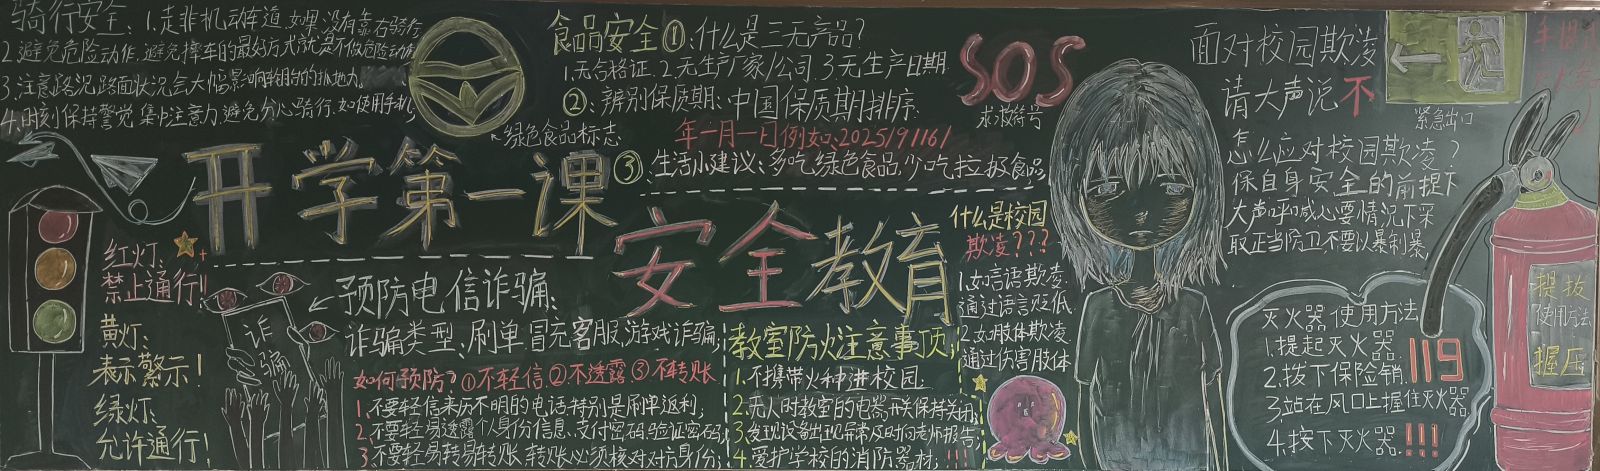 骑行安全:1.走非机动车道,如果没有靠右骑行
2.避免危险动作,避免摔车的最好方式就是不做危险动作
3.注意路况,路面状况会大幅影响轮胎的抓地力
4.时刻保持警觉,集中注意力,避免分心骑行,如使用手机
食品安全①:什么是三无产品?
1.无合格证.2.无生产厂家/公司.3.无生产日期.
②:辨别保质期:中国保质期排序:
年一月一日例如:2025/9/16/
③:生活小建议:多吃绿色食品,少吃垃圾食品。
绿色食品标志
SOS
求救符号
面对校园欺凌
请大声说不
紧急出口
怎么应对校园欺凌?
保自身安全的前提下
大声呼喊必要情况下采
取正当防卫,不要以暴制暴
开学第一课
安全教育
红灯:
禁止通行!!
黄灯:
表示警示!
绿灯:
允许通行!
诈骗
预防电信诈骗:
诈骗类型:刷单冒充客服,游戏诈骗;
如何预防?①不轻信②不透露③不转账
1.不要轻信来历不明的电话特别是刷单返利;
2.不要轻易透露个人身份信息、支付密码,验证密码;
3.不要轻易转易转账,转账必须核对对方身份;
教室防火注意事项:
1.不携带火种进校园.
2.无人时教室的电器开关保持关闭;
3.发现设备出现异常及时向老师报告;
4.爱护学校的消防器材;!!!
什么是校园
欺凌???
1.如言语欺凌
通过语言贬低
2.如肢体欺凌
通过伤害肢体
灭火器使用方法
1.提起灭火器
119
2.拔下保险销.
3.站在风口上握住灭火器
4.按下灭火器!!!
提拔
使用方法
握压